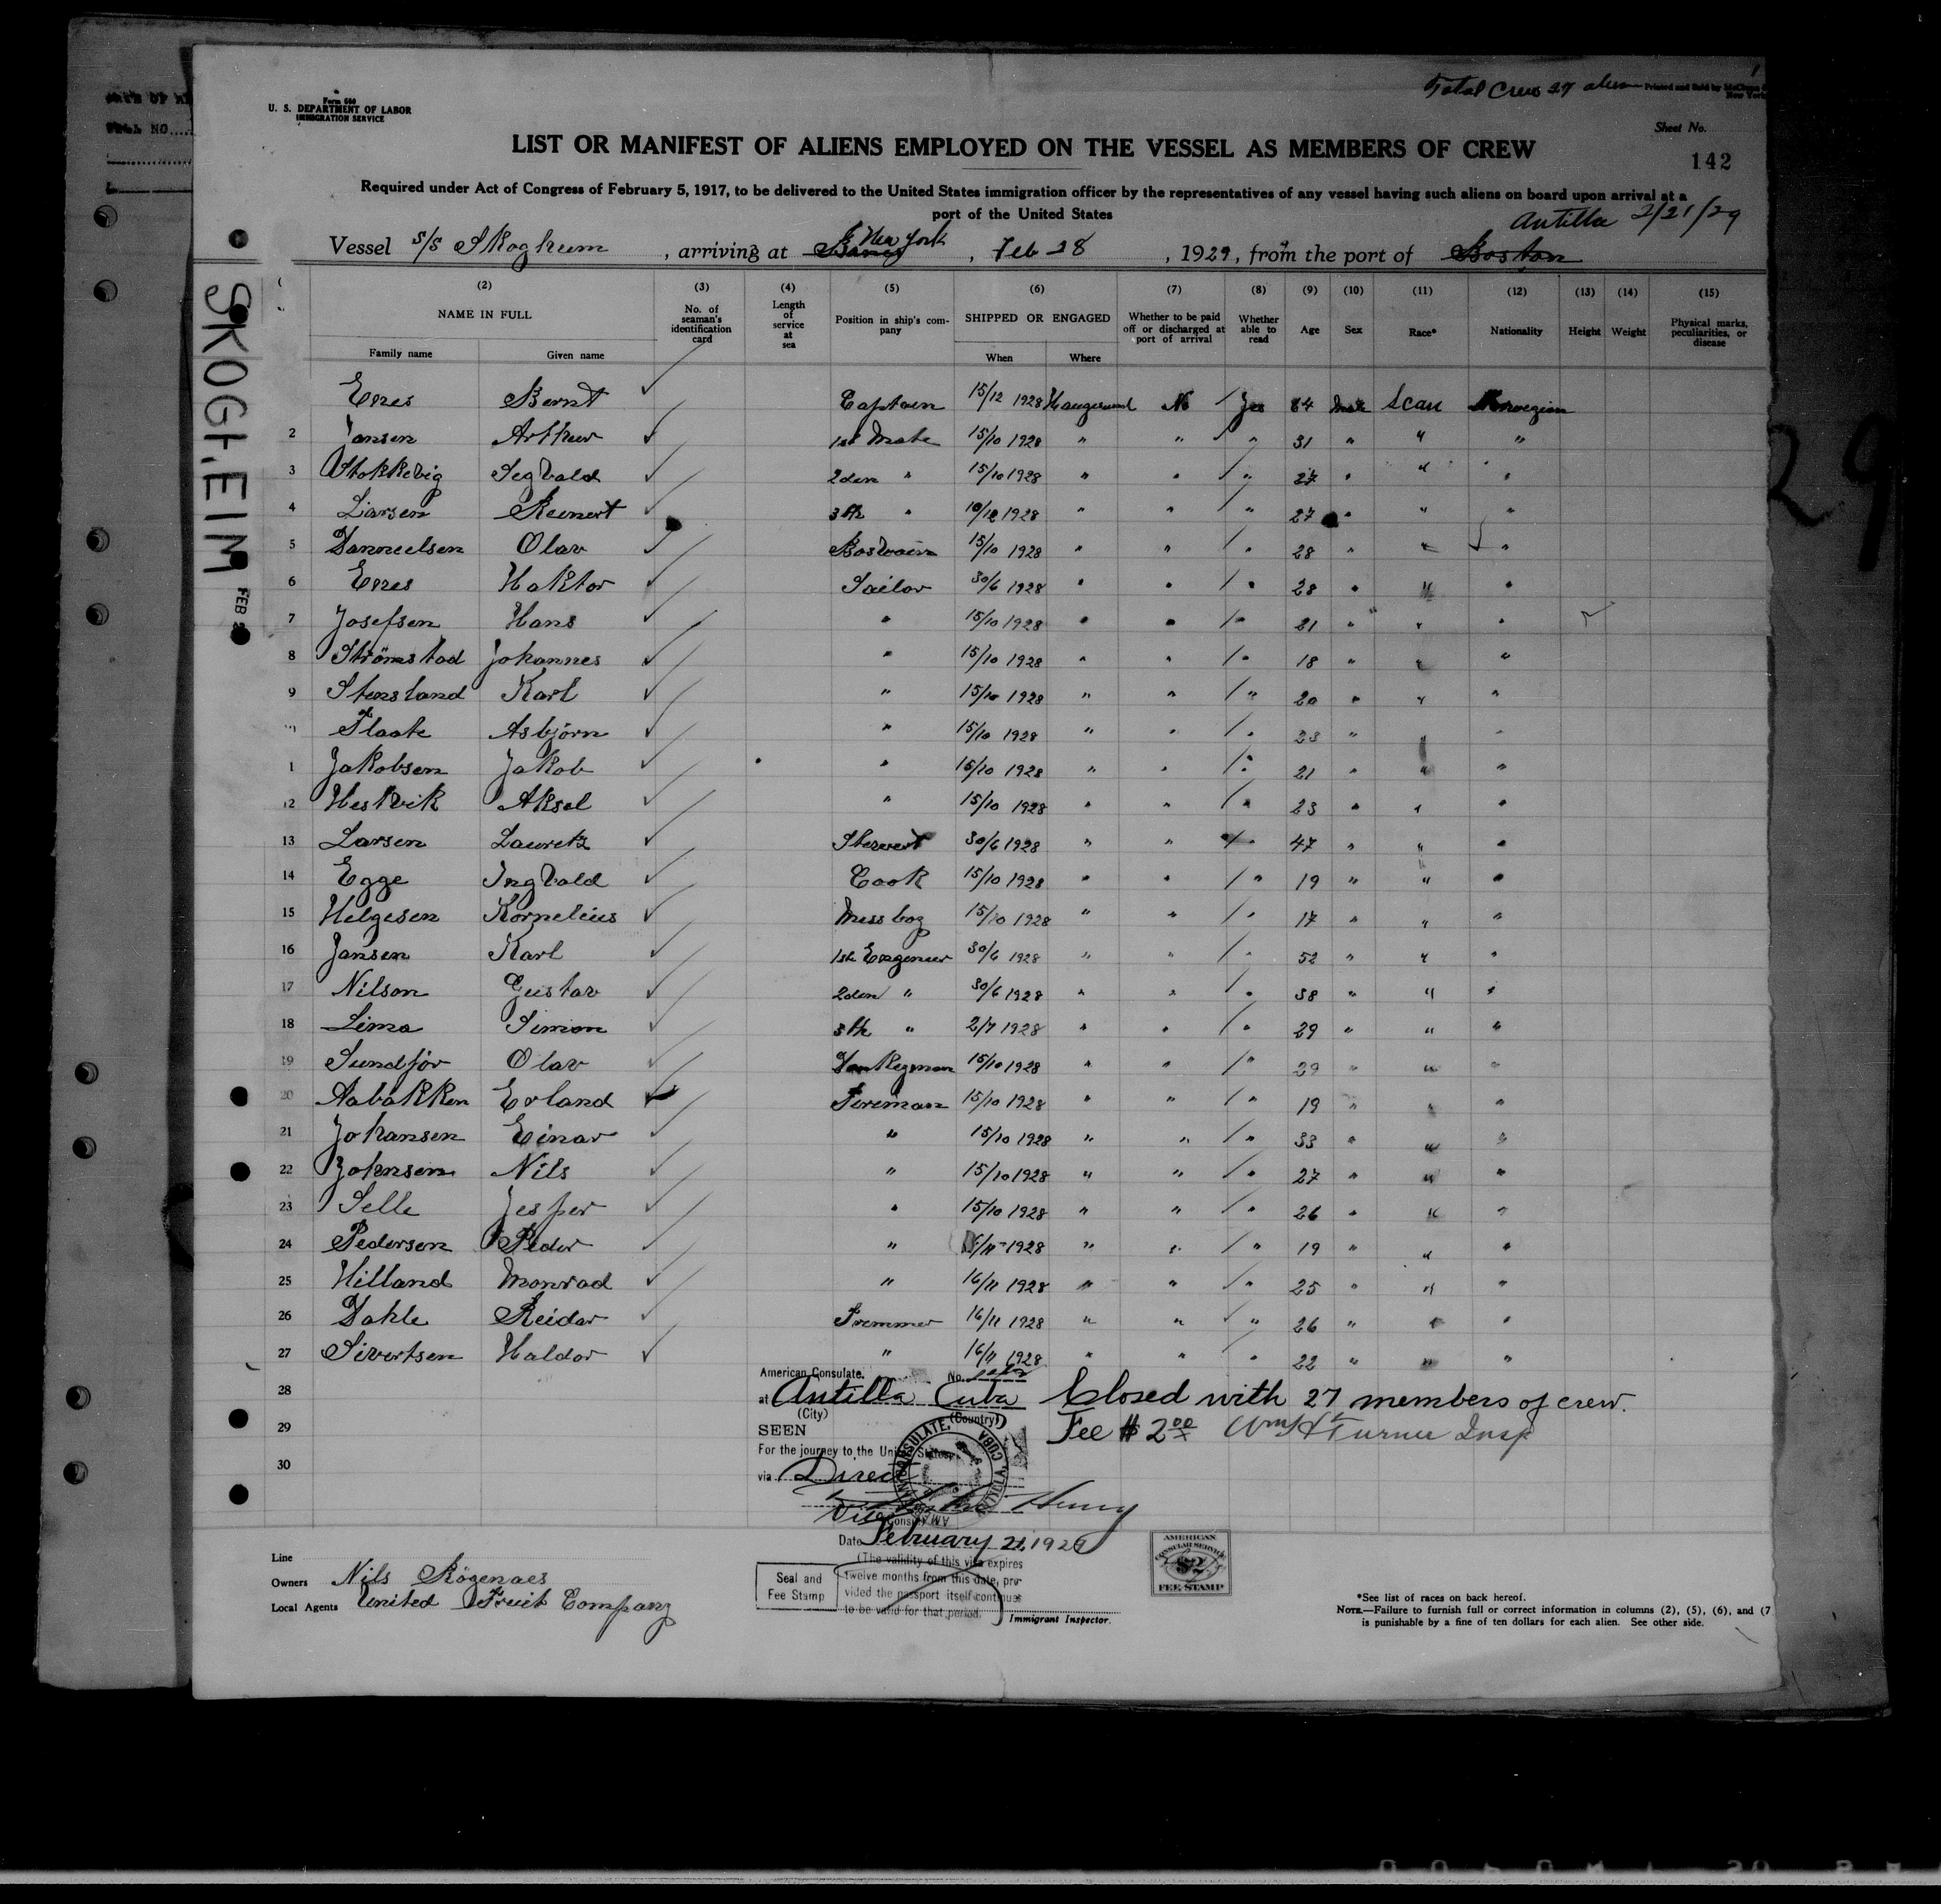 Total Crew 27 alien
Printed and Sold by
New York
Form 680
U. S. DEPARTMENT OF LABOR
IMMIGRATION SERVICE
Sheet No.
142
LIST OR MANIFEST OF ALIENS EMPLOYED ON THE VESSEL AS MEMBERS OF CREW
Required under Act of Congress of February 5, 1917, to be delivered to the United States immigration officer by the representatives of any vessel having such aliens on board upon arrival at a
port of the United States
Antilla 2/21/29
Vessel S/S Skogheim, arriving at New York, Feb 28, 1929, from the port of Boston
SKOGHEIM FEB
(2) (3) (4) (5) (6) (7) (8) (9) (10) (11) (12) (13) (14) (15)
NAME IN FULL No. of seaman's identification card Length of service at sea Position in ship's company SHIPPED OR ENGAGED Whether to be paid off or discharged at port of arrival Whether able to read Age Sex Race* Nationality Height Weight Physical marks, peculiarities, or disease
Family name Given name When Where
Enes Bernt Captain 15/12 1928 Haugesund No Yes 64 Male Scan Norwegian
2 Jansen Arthur 1st Mate 15/10 1928 " " " 31 " " "
3 Stokkevig Sigvald 2den " 15/10 1928 " " " 27 " " "
4 Larsen Reinert 3th " 10/12 1928 " " " 27 " " "
5 Danneelsen Olav Bostvain 15/10 1928 " " " 28 " " "
6 Enes Haktor Sailor 30/6 1928 " " " 28 " " "
7 Josefsen Hans " 15/10 1928 " " " 21 " " "
8 Strømstad Johannes " 15/10 1928 " " " 18 " " "
9 Stensland Karl " 15/10 1928 " " " 20 " " "
Flaate Asbjørn " 15/10 1928 " " " 23 " " "
1 Jakobsen Jakob " 15/10 1928 " " " 21 " " "
12 Heskvik Aksel " 15/10 1928 " " " 23 " " "
13 Larsen Lauretz Stewert 30/6 1928 " " " 47 " " "
14 Egge Ingvald Cook 15/10 1928 " " " 19 " " "
15 Helgesen Kornelius Mess boy 15/10 1928 " " " 17 " " "
16 Jansen Karl 1st Engenier 30/6 1928 " " " 52 " " "
17 Nilson Gustav 2den " 30/6 1928 " " " 38 " " "
18 Lima Simon 3th " 2/7 1928 " " " 29 " " "
19 Sundfør Olav Donkeyman 15/10 1928 " " " 29 " " "
20 Aabakken Erland Fireman 15/10 1928 " " " 19 " " "
21 Johansen Einar " 15/10 1928 " " " 33 " " "
22 Johnsen Nils " 15/10 1928 " " " 27 " " "
23 Selle Jesper " 15/10 1928 " " " 26 " " "
24 Pedersen Peder " /11-1928 " " " 19 " " "
25 Hilland Monrad " 16/11 1928 " " " 25 " " "
26 Dahle Reidar Tremmer 16/11 1928 " " " 26 " " "
27 Sivertsen Haldor " 16/11 1928 " " " 22 " " "
28
29
30
American Consulate. No.
at Antilla Cuba Closed with 27 members of crew.
(City) (Country)
Fee $ 2.00 Wm H Turner Insp
SEEN
For the journey to the United States
via Direct
Henry
Vice Consul
Date February 21, 1929
(The validity of this visa expires
twelve months from this date, pro-
vided the passport itself continues
to be valid for that period.
Seal and
Fee Stamp
Immigrant Inspector.
AMERICAN
CONSULAR SERVICE
$2
FEE STAMP
Line
Owners Nils Røgenaes
Local Agents United Fruit Company
*See list of races on back hereof.
NOTE.—Failure to furnish full or correct information in columns (2), (5), (6), and (7
is punishable by a fine of ten dollars for each alien. See other side.